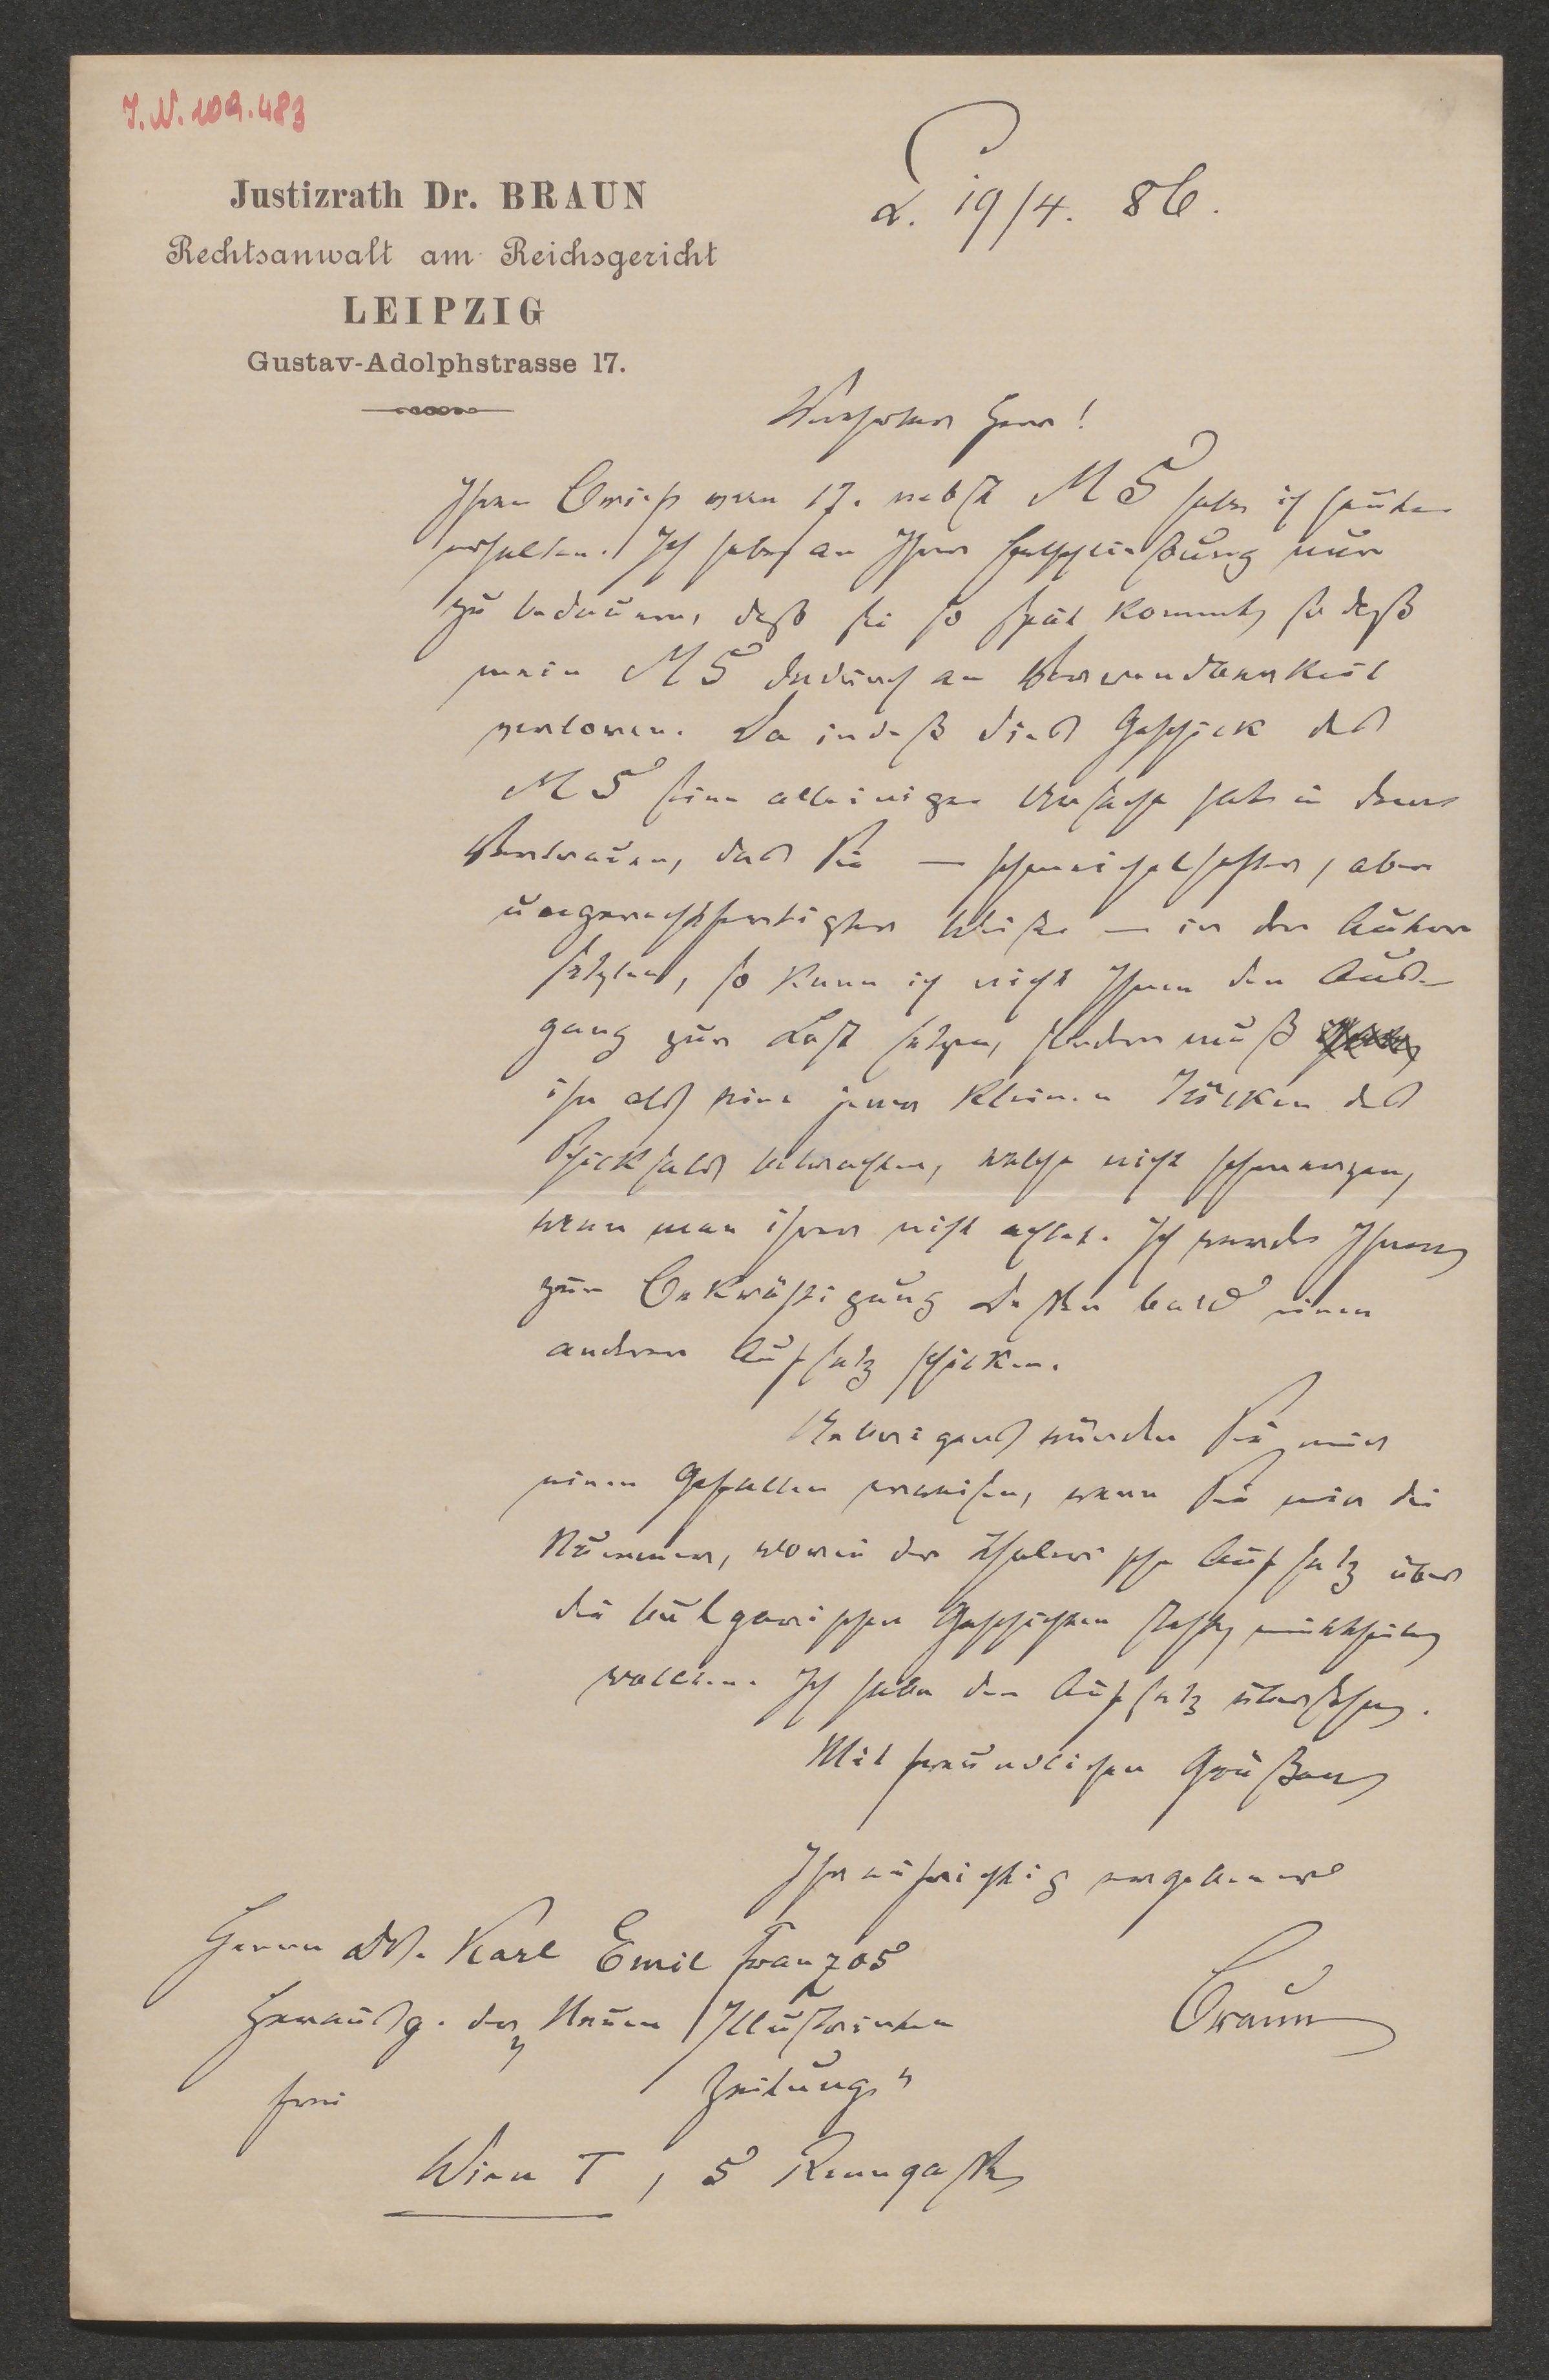 J. N. 109.483
Justizrath Dr. BRAUN
Rechtsanwalt am Reichsgericht
LEIPZIG
Gustav-Adolphstrasse 17.
L. 19/4. 86.
Verehrter Herr!
Ihren Brief vom 17. nebst MS habe ich heute
erhalten. Ich habe an Ihrer Entschließung nur
zu bedauern, daß sie so spät kommt, so daß
mein MS dadurch an Verwendbarkeit
verloren. Da indeß dies Geschick des
MS seine alleinige Ursache hat in dem
Vertrauen, das Sie — schmeichelhafter, aber
ungerechtfertigter Weise — in den Autor
setzten, so kann ich nicht Ihnen den Aus-
gang zur Last setzen, sondern muß
ihn als eine jener kleinen Tücken des
Schicksals betrachten, welche nicht schmerzen,
wenn man ihrer nicht achtet. Ich werde Ihnen
zur Bekräftigung dessen bald einen
anderen Aufsatz schicken.
Uebrigens würden Sie mir
einen Gefallen erweisen, wenn Sie mir die
Nummer, worin der Aufsatz über
die bulgarischen Geschichten steht, mittheilen
wollten. Ich habe den Aufsatz übersehen.
Mit freundlichen Grüßen
Ihr aufrichtig ergebener
Braun
Herrn Dr. Karl Emil Franzos
Herausg. der „Neuen Illustrirten
Zeitung"
frei
Wien I, 5 Renngasse